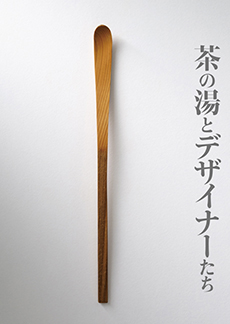 茶の湯とデザイナーたち